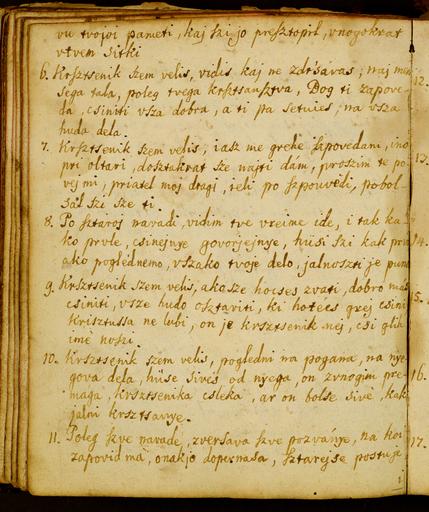 vu tvojoi pameti, kaj szi jo presztopil, vnogokrat
vtvem sitki
6. Krsztsenik szem velis, vidis kaj ne zdrsavas; naj men
sega tala, poleg tvega krsztsansztva, Bog ti zapove
da, csiniti vsza dobra, a ti pa setuies, na vsza
huda dela.
7. Krsztsenik szem velis, iasz me grehe szpovedam, ino
pri oltari, dosztakrat sze najti dám, proszim te po
vej mi, priatel moj dragi, jeli po szpouvedi, pobol-
sál szi sze ti.
8. Po sztaroj navadi, vidim tve vreime ide, i tak ka
ko prvle, csinejnye govorjejnye, hüsi szi kak prv
ako poglednemo, vszako tvoje delo, jalnoszti je puno
9. Krsztsenik szem velis, ako sze hocses zvati, dobro mas
csiniti, vsze hudo osztaviti, ki hotécs grej csini
Krisztussa ne lubi, on je krsztsenik nej, csi glih
ime noszi.
10. Krsztsenik szem velis, pogledni na pogana, na nye
gova dela, hüse sivés od nyega, on zvnogim pre
maga, krsztsenika csleka, ar on bolse sivé, kak
jalni krsztsanye.
11. Poleg szve navade, zversava szve pozványe, na koi
zapovid má, onakjo dopernása, sztarejse postuje
12.
13.
14.
15.
16.
17.